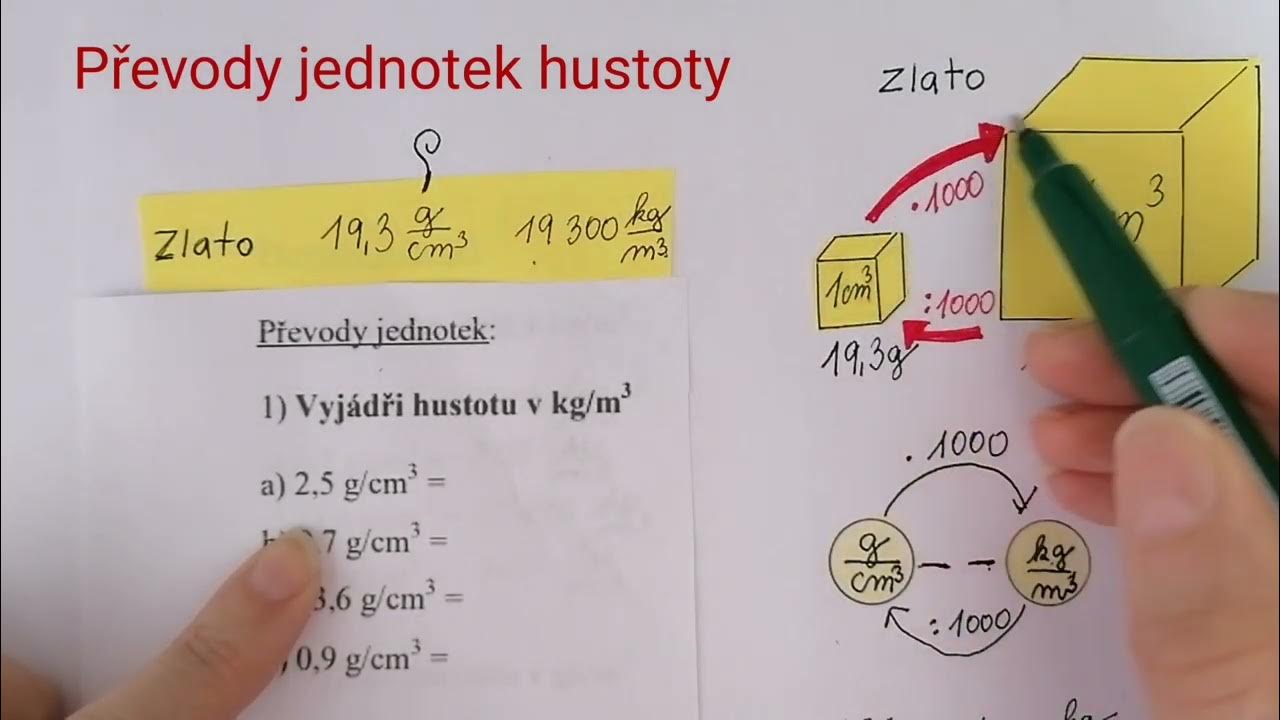 Převody jednotek hustoty
ρ
Zlato 19,3 g/cm³ 19 300 kg/m³
Převody jednotek:
1) Vyjádři hustotu v kg/m³
a) 2,5 g/cm³ =
7 g/cm³ =
3,6 g/cm³ =
0,9 g/cm³ =
zlato
.1000
1cm³
:1000
19,3g
. 1000
g/cm³ – – kg/m³
: 1000